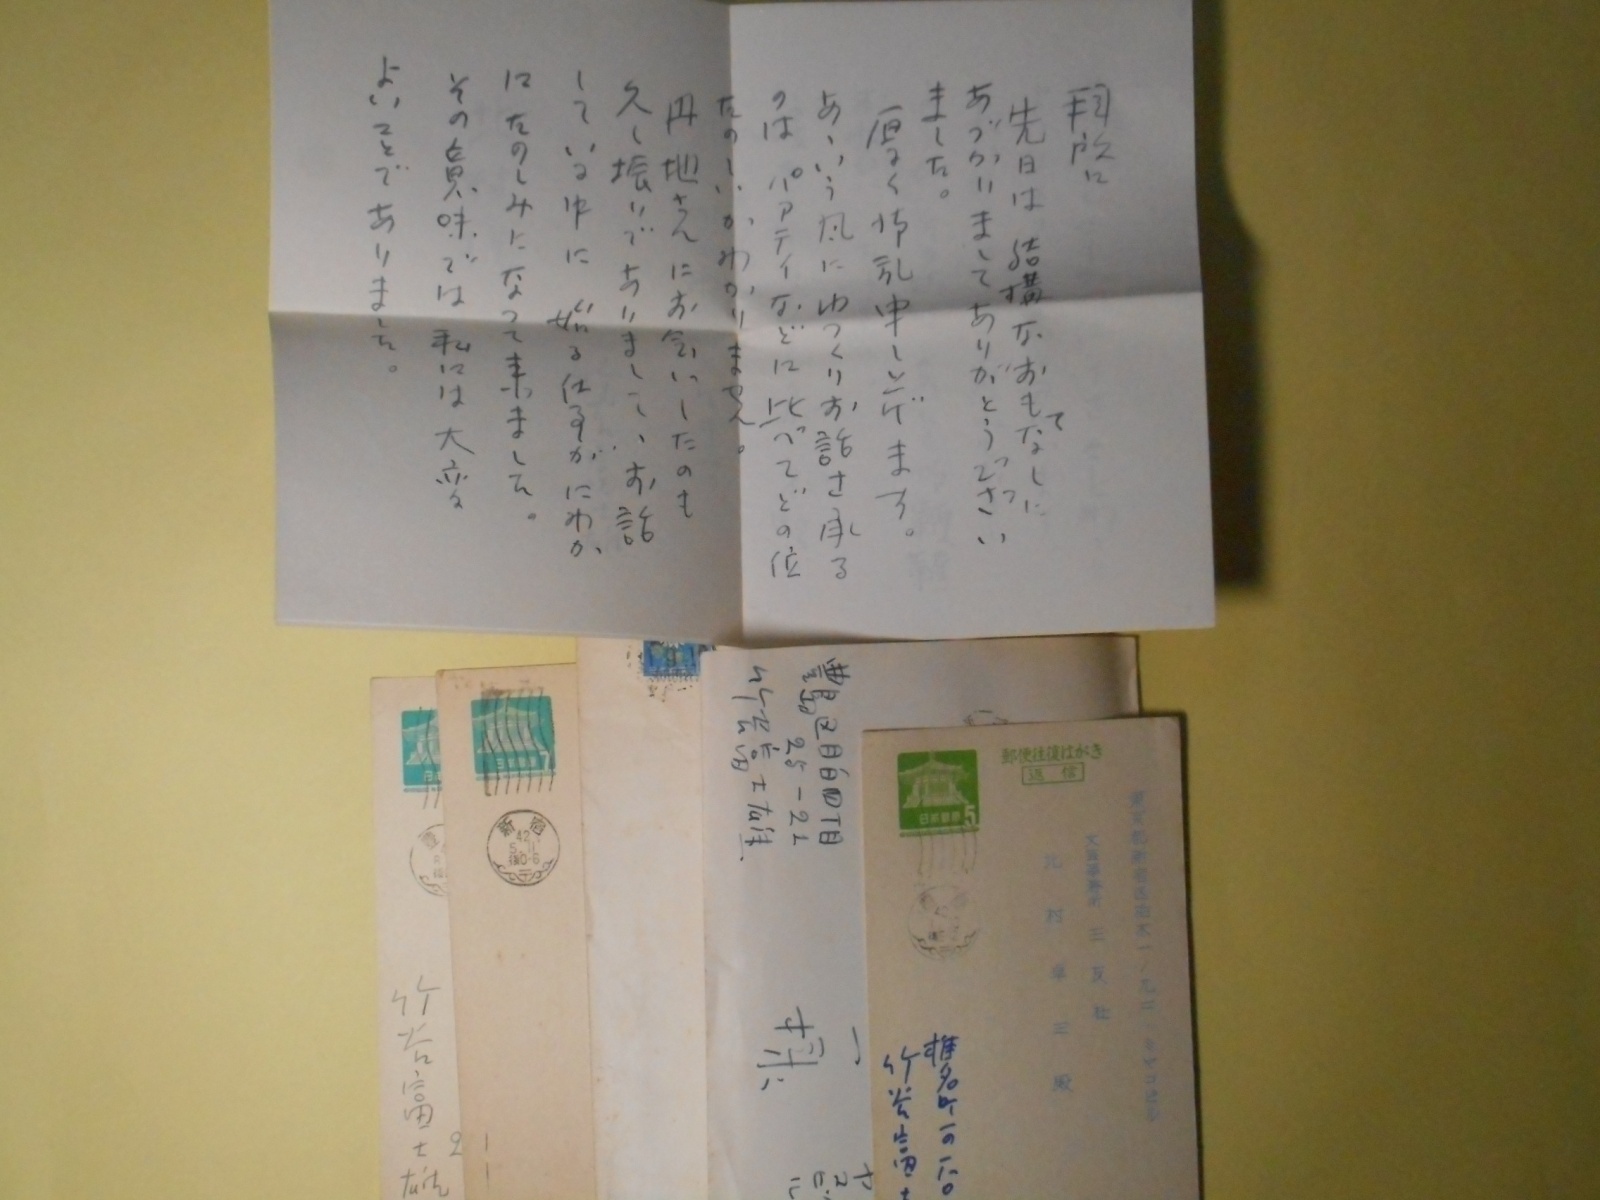 拝啓
先日は結構なおもてなしに
あづかりましてありがとうござい
ました。
厚く御礼申し上げます。
あゝいう風にゆっくりお話さ承る
のはパアティなどに比べてどの位
たのしいかわかりません。
円地さんにお会いしたのも
久し振りでありまして、お話
している中に 始る仕事がにわか
にたのしみになって来ました。
その意味では私には大変
よいことでありました。
豊島区目白四丁目
25-21
竹谷富士雄
郵便往復はがき
返信
日本郵便 5
元村卓三殿
椎名町一の一八〇
竹谷富士
日本郵便 7
新宿
42
5.11
後0-6
竹谷富士雄